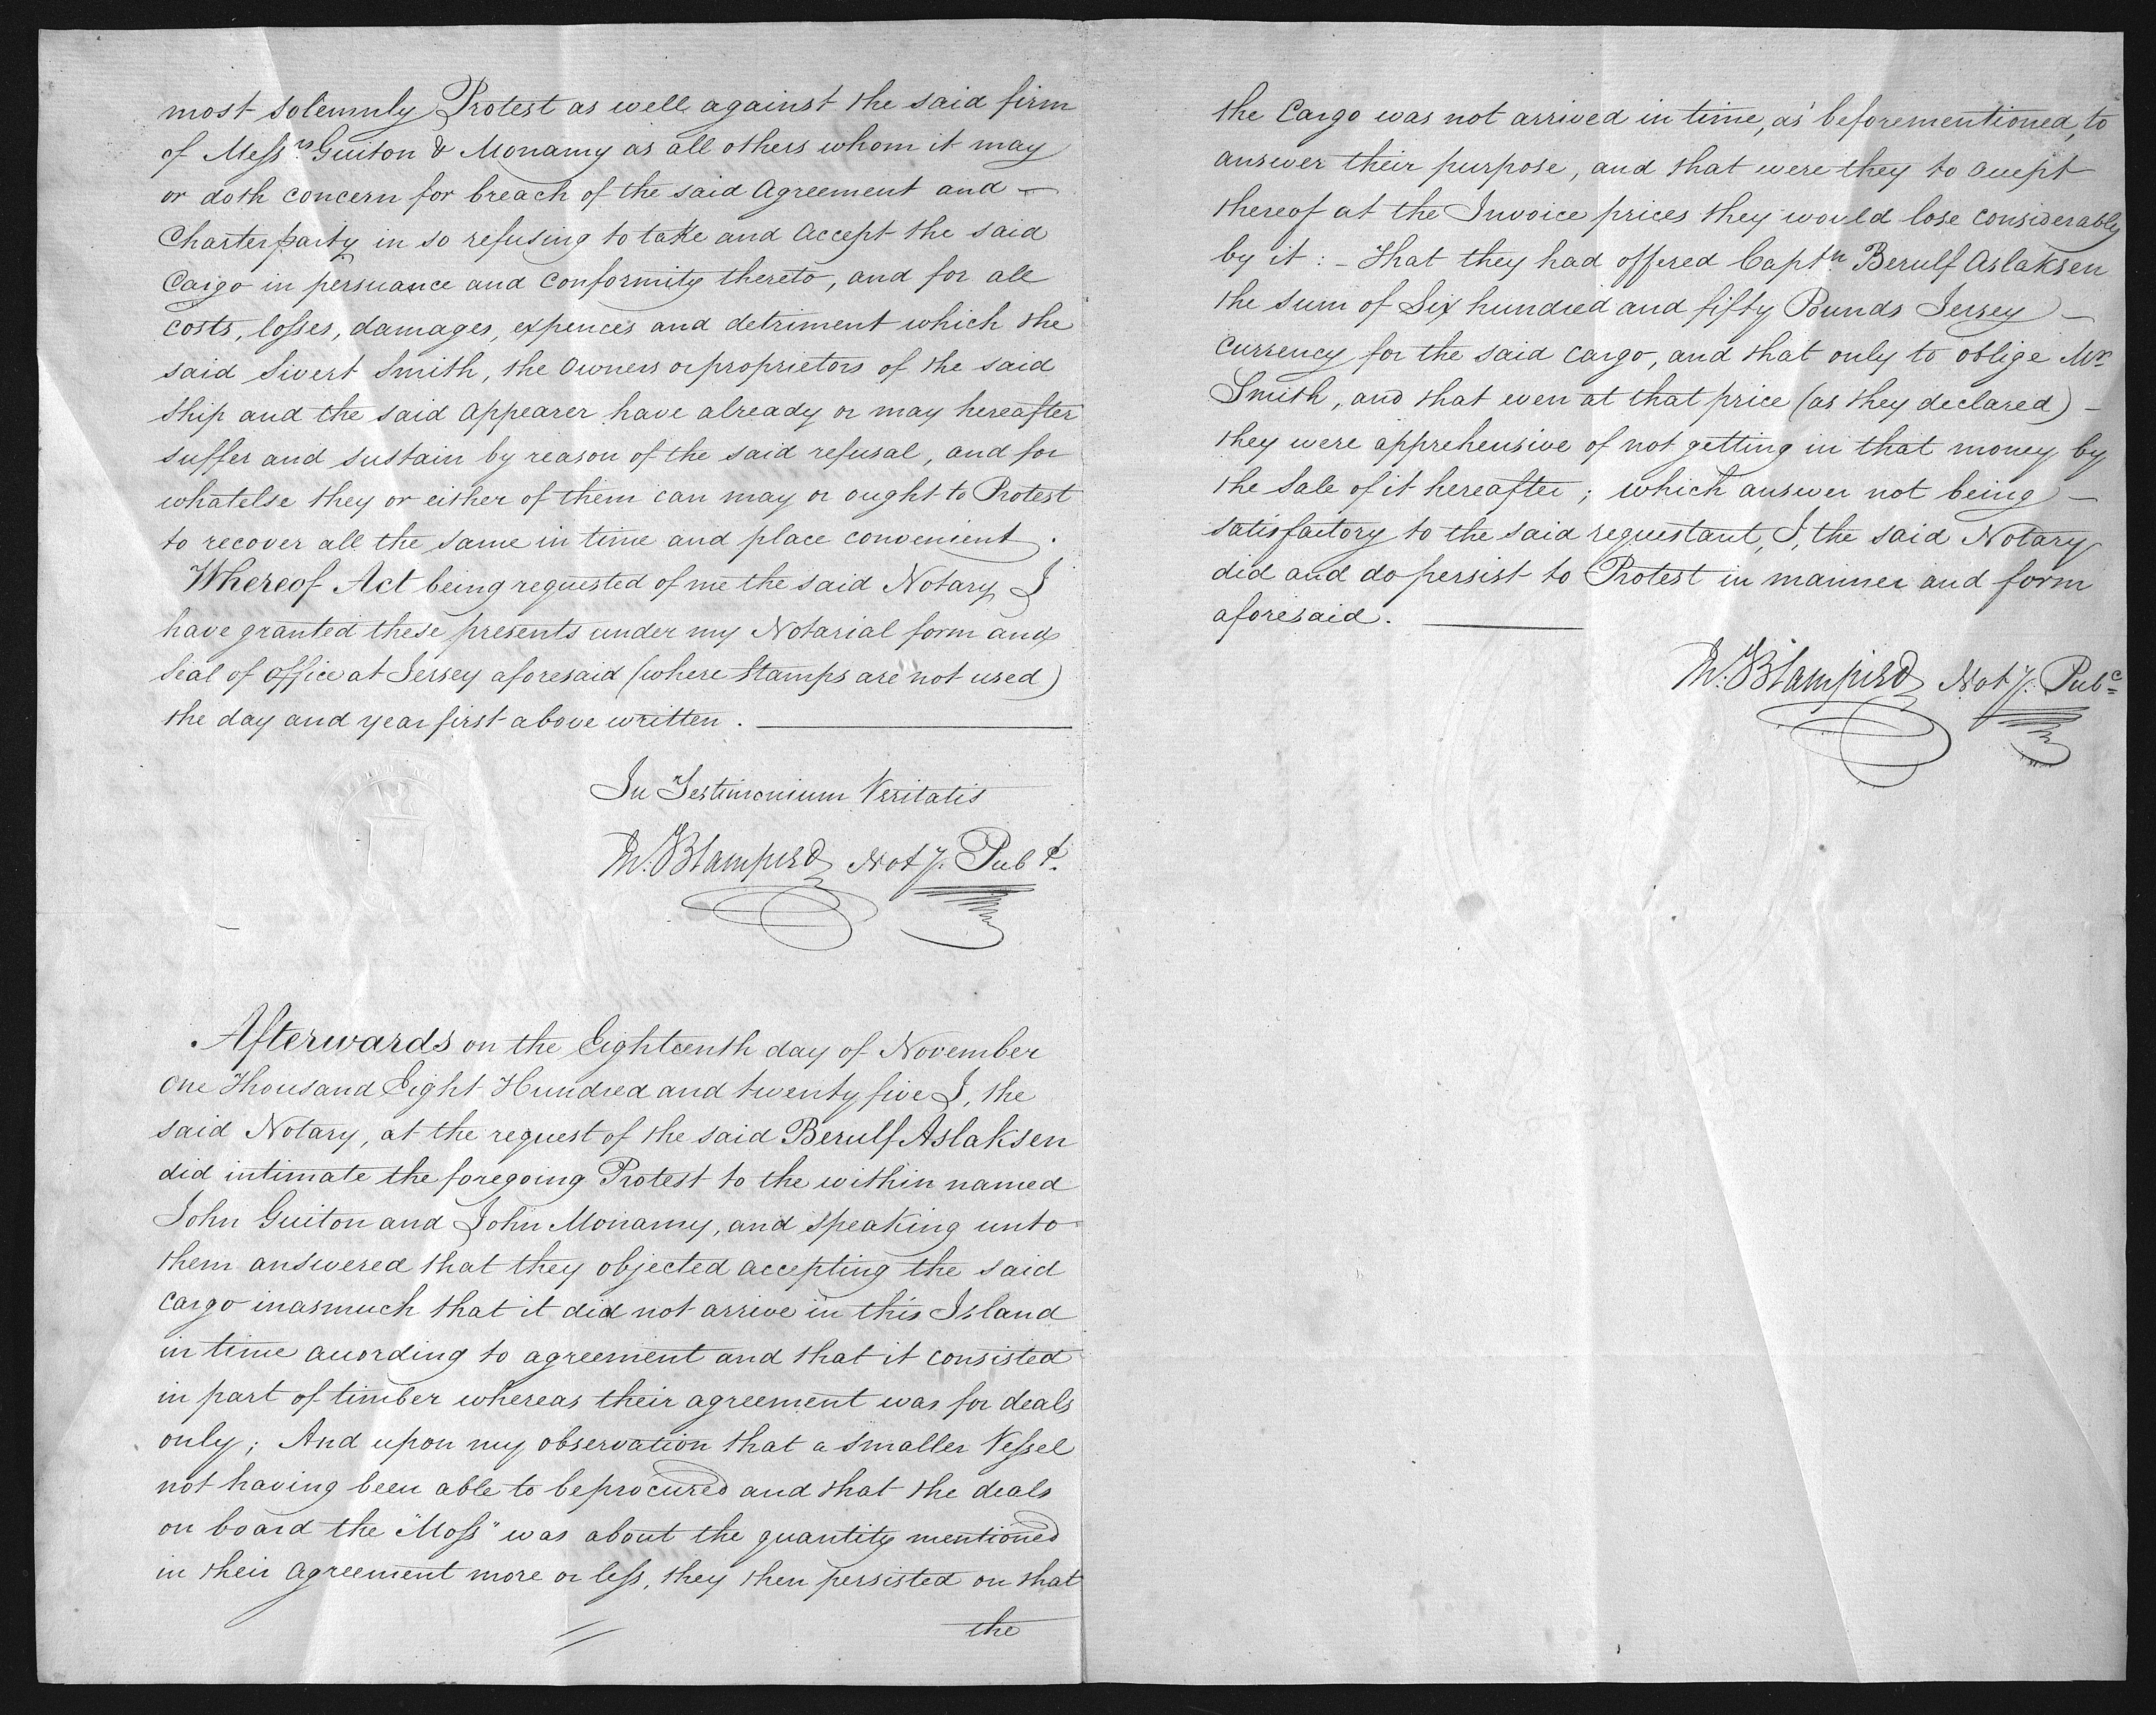 most solemnly Protest as well against the said firm
of Messrs. Guiton & Monamy as all others whom it may
or doth concern for breach of the said Agreement and –
Charterparty in so refusing to take and accept the said
Cargo in persuance and conformity thereto, and for all
costs, losses, damages, expences and detriment which the
said Sivert Smith, the Owners or proprietors of the said
Ship and the said appearer have already or may hereafter
suffer and sustain by reason of the said refusal, and for
whatelse they or either of them can may or ought to Protest
to recover all the same in time and place convenient.
Whereof Act being requested of me the said Notary I
have granted these presents under my Notarial form and
Seal of office at Jersey aforesaid (where Stamps are not used)
the day and year first above written.
In Testimonium Veritatis
M. Blampied Noty. Pubc.
Afterwards on the Eighteenth day of November
One Thousand Eight Hundred and twenty five I, the
said Notary, at the request of the said Berulf Aslaksen
did intimate the foregoing Protest to the within named
John Guiton and John Monamy, and speaking unto
them answered that they objected accepting the said
cargo inasmuch that it did not arrive in this Island
in time according to agreement and that it consisted
in part of timber whereas their agreement was for deals
only; And upon my observation that a smaller Vessel
not having been able to be procured and that the deals
on board the "Moss" was about the quantity mentioned
in their agreement more or less, they then persisted on that
the
the Cargo was not arrived in time, as beforementioned, to
answer their purpose, and that were they to accept
thereof at the Invoice prices they would lose considerably
by it: – That they had offered Captn. Berulf Aslaksen
the sum of Six hundred and fifty Pounds Jersey –
currency for the said cargo, and that only to oblige Mr.
Smith, and that even at that price (as they declared) –
they were apprehensive of not getting in that money by
the Sale of it hereafter; which answer not being –
satisfactory to the said requestant, I, the said Notary
did and do persist to Protest in manner and form
aforesaid.
M. Blampied Noty. Pubc.